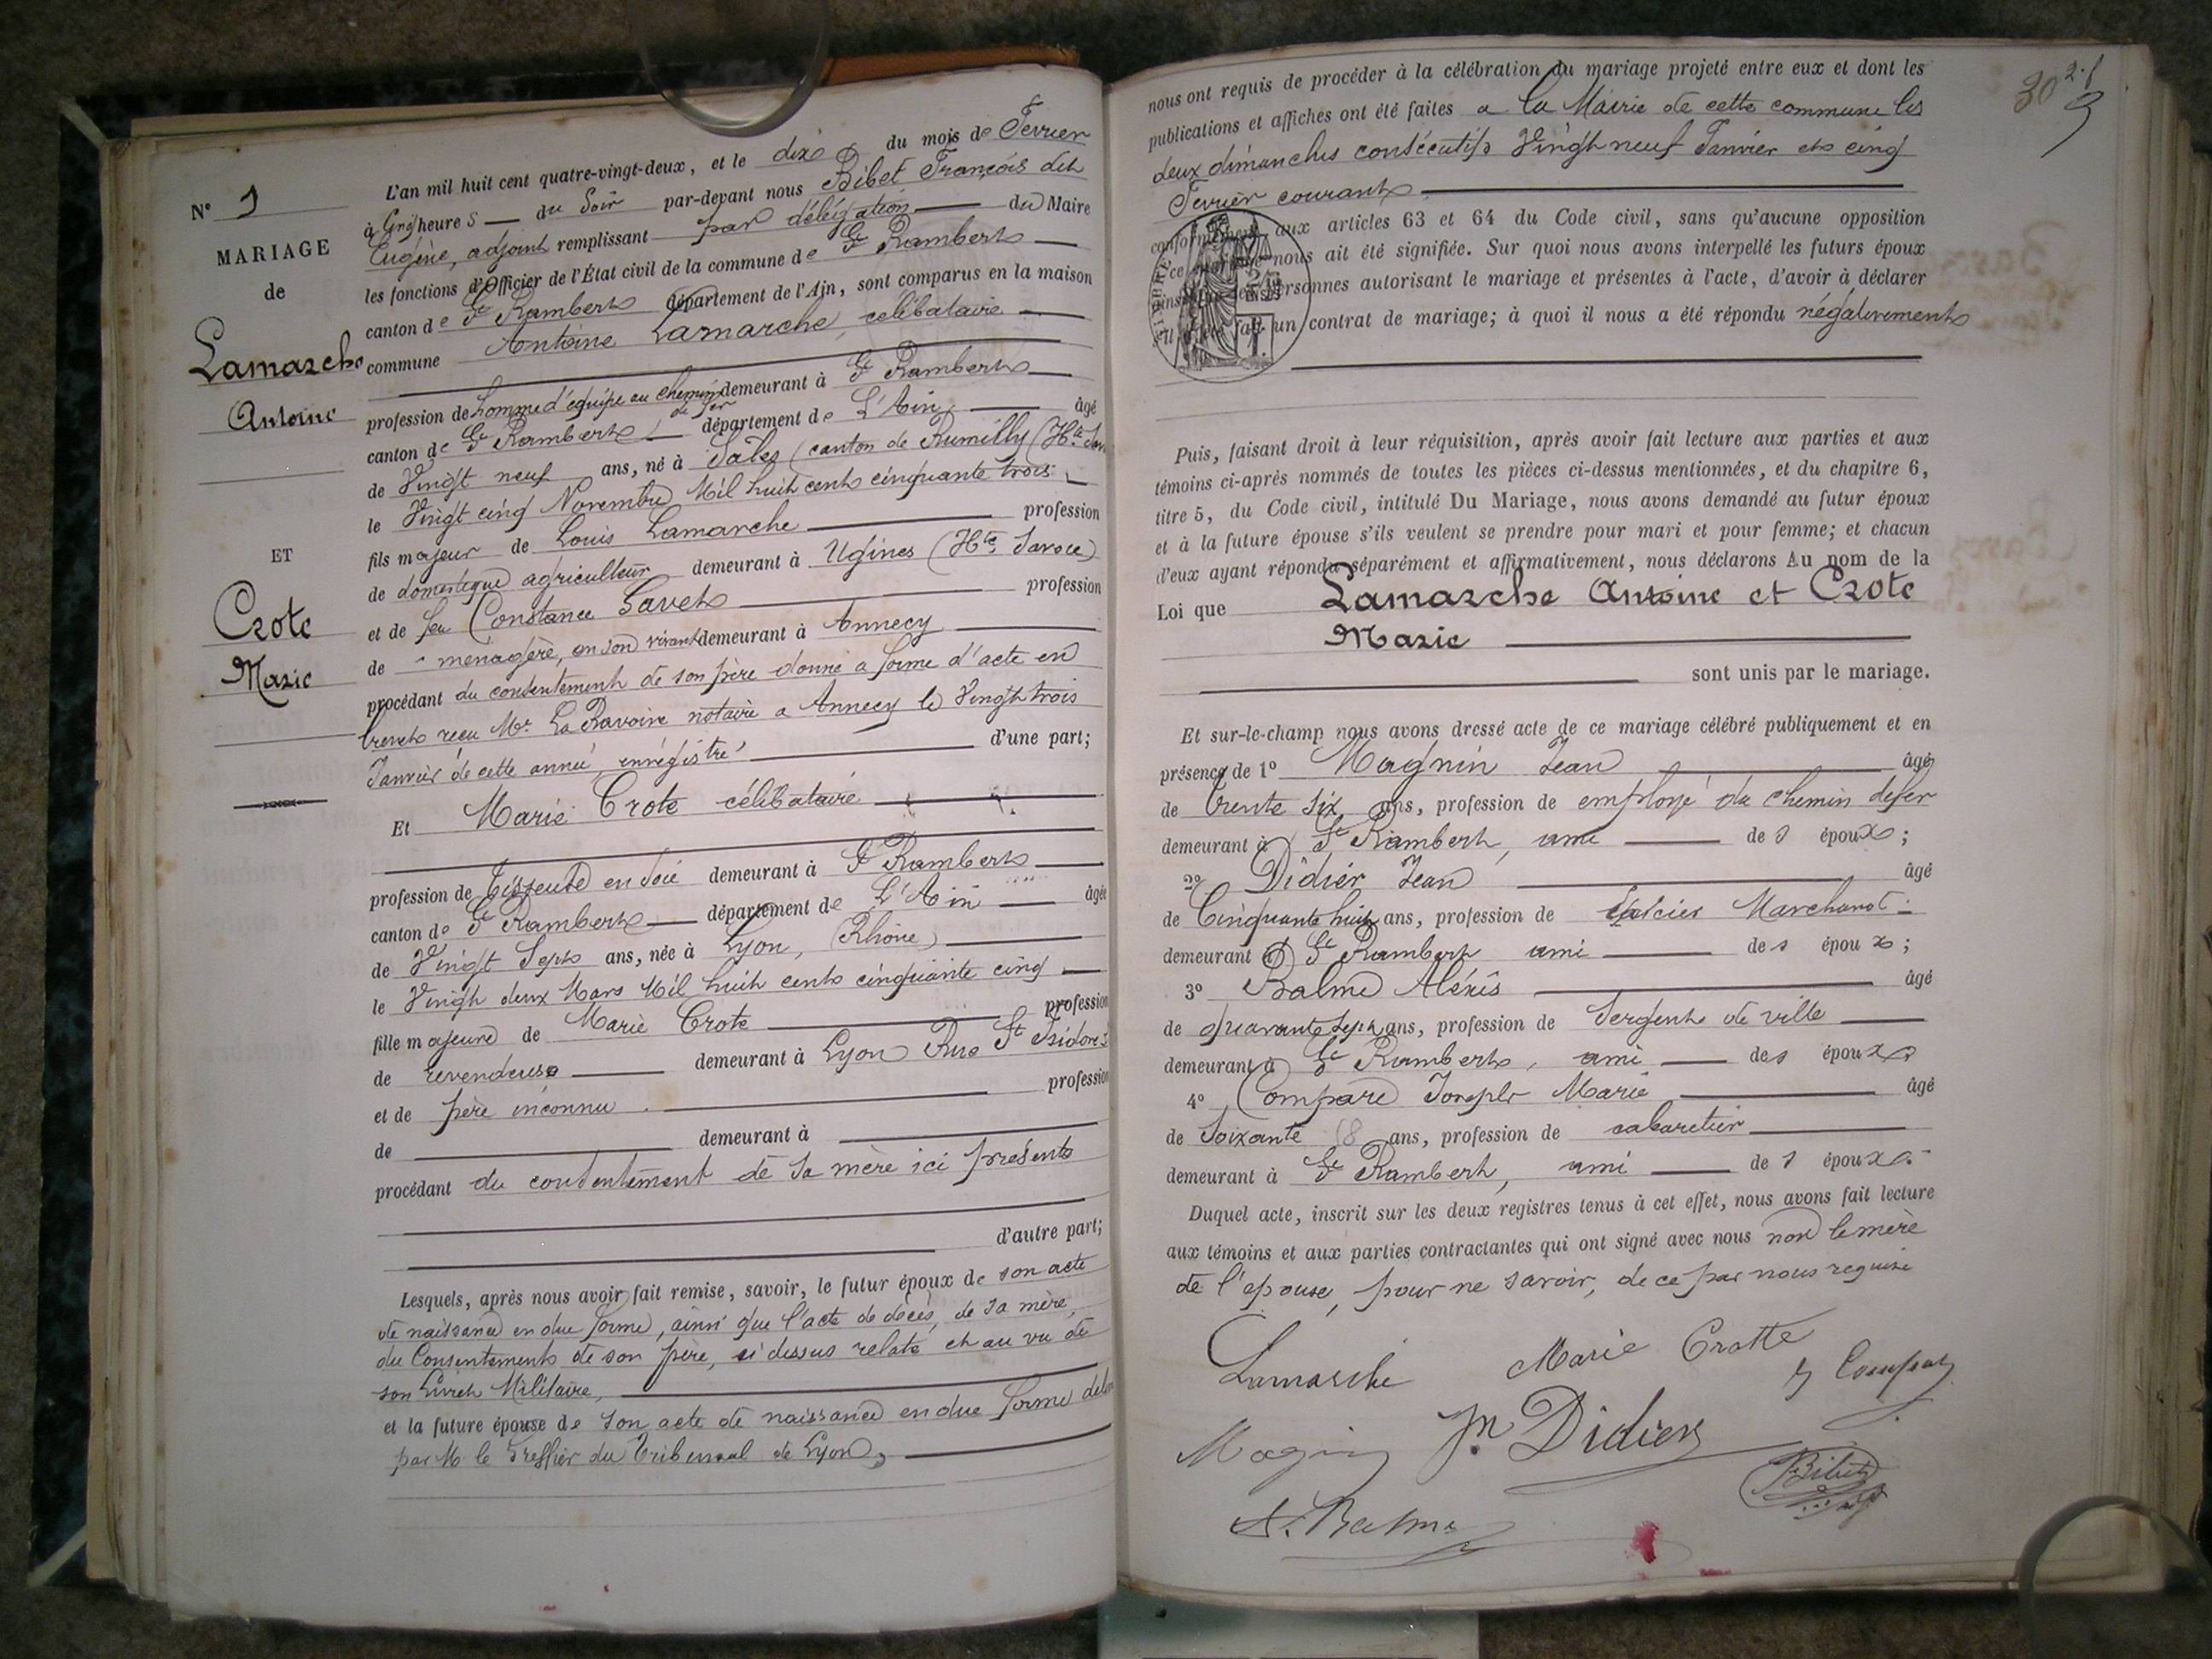 N° 1
MARIAGE
de
Lamarche
Antoine
ET
Crote
Marie
L'an mil huit cent quatre-vingt-deux, et le dix du mois de Fevrier
à Cinq heures du Soir par-devant nous Bibet François dit
Eugène, adjoint remplissant par délégation du Maire
les fonctions d'Officier de l'État civil de la commune de St Rambert
canton de St Rambert département de l'Ain, sont comparus en la maison
commune Antoine Lamarche, célibataire
profession de homme d'équipe au chemin de fer demeurant à St Rambert
canton de St Rambert département de L'Ain âgé
de Vingt neuf ans, né à Sales (canton de Rumilly (Hte
le Vingt cinq Novembre Mil huit cent cinquante trois
fils majeur de Louis Lamarche profession
de domestique agriculteur demeurant à Ugines (Hte Savoie)
et de feu Constance Savet profession
de ménagère, en son vivant demeurant à Annecy
procédant du contentement de son père donné a forme d'acte en
brevet reçu Mr La Ravoire notaire a Annecy le Vingt trois
Janvier de cette année, enrégistré d'une part;
Et Marie Crote célibataire
profession de tisseuse en soie demeurant à St Rambert
canton de St Rambert département de L'Ain âgée
de Vingt Sept ans, née à Lyon, (Rhône)
le Vingt deux Mars Mil huit cent cinquante cinq
fille majeure de Marie Crote profession
de revendeuse demeurant à Lyon Rue St Isidore
et de père inconnu profession
de demeurant à
procédant du contentement de sa mère ici présente
d'autre part;
Lesquels, après nous avoir fait remise, savoir, le futur époux de son acte
de naissance en due forme, ainsi que l'acte de décès, de sa mère,
du Consentement de son père, ci dessus relaté et au vu de
son Livret Militaire,
et la future épouse de son acte de naissance en due forme
par M le Greffier du Tribunal de Lyon,
30
nous ont requis de procéder à la célébration du mariage projeté entre eux et dont les
publications et affiches ont été faites a la Mairie de cette commune les
deux dimanches consécutifs Vingt neuf Janvier et cinq
Fevrier courant
conformément aux articles 63 et 64 du Code civil, sans qu'aucune opposition
à ce mariage nous ait été signifiée. Sur quoi nous avons interpellé les futurs époux
ainsi que les personnes autorisant le mariage et présentes à l'acte, d'avoir à déclarer
s'il a été fait un contrat de mariage; à quoi il nous a été répondu négativement
TIMBRE
Puis, faisant droit à leur réquisition, après avoir fait lecture aux parties et aux
témoins ci-après nommés de toutes les pièces ci-dessus mentionnées, et du chapitre 6,
titre 5, du Code civil, intitulé Du Mariage, nous avons demandé au futur époux
et à la future épouse s'ils veulent se prendre pour mari et pour femme; et chacun
d'eux ayant répondu séparément et affirmativement, nous déclarons Au nom de la
Loi que Lamarche Antoine et Crote
Marie
sont unis par le mariage.
Et sur-le-champ nous avons dressé acte de ce mariage célébré publiquement et en
présence de 1° Magnin Jean âgé
de trente six ans, profession de employé du chemin de fer
demeurant à St Rambert, ami des époux;
2° Didier Jean âgé
de Cinquante huit ans, profession de Marchand
demeurant à St Rambert ami des époux;
3° Balme Aléxis âgé
de quarante sept ans, profession de Sergent de ville
demeurant à St Rambert, ami des époux
4° Compare Joseph Marie âgé
de Soixante 8 ans, profession de cabaretier
demeurant à St Rambert, ami des époux
Duquel acte, inscrit sur les deux registres tenus à cet effet, nous avons fait lecture
aux témoins et aux parties contractantes qui ont signé avec nous non le mère
de l'épouse, pour ne savoir, de ce par nous requise
Lamarche Marie Crotte
Magnin Jn Didier
Bibet
A. Balme